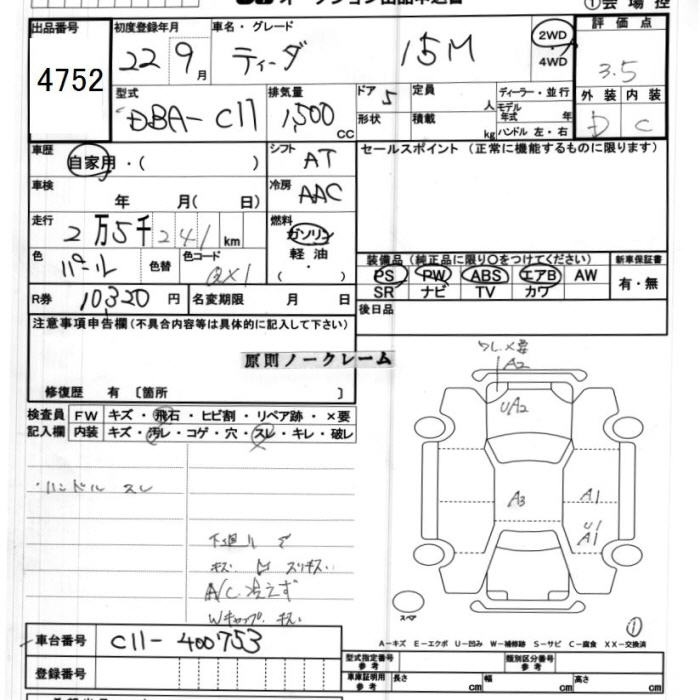 オークション出品申込書
①会場控
出品番号 4752
初度登録年月 22 9月
車名・グレード ティーダ 15M
2WD ・ 4WD
評価点 3.5
外装 内装
D C
型式 DBA-C11
排気量 1,500 cc
ドア 5
形状
定員 人
積載 kg
ディーラー・並行
モデル年式 年
ハンドル 左・右
車歴 自家用・( )
シフト AT
セールスポイント (正常に機能するものに限ります)
車検 年 月( 日)
冷房 AAC
走行 2万5千241km
燃料 ガソリン 軽油 ( ・ )
色 パール 色替 色コード QX1
装備品 (純正品に限り○をつけてください)
新車保証書
PS PW ABS エアB AW
SR ナビ TV カワ
有・無
R券 10320 円 名変期限 月 日
後日品
注意事項申告欄(不具合内容等は具体的に記入して下さい)
原則ノークレーム
修復歴 有 [箇所 ]
検査員記入欄
FW キズ・飛石・ヒビ割・リペア跡・×要
内装 キズ・汚レ・コゲ・穴・スレ・キレ・破レ
・ハンドル スレ
下廻り サビ
キズ スリキズ
A/C 冷えず
Wキャップ キズ
A2
UA2
A3
A1
U1
A1
スペア
①
A－キズ E－エクボ U－凹み W－補修跡 S－サビ C－腐食 XX－交換済
車台番号 C11-400753
登録番号
型式指定番号 参考
類別区分番号 参考
車庫証明用 参考 長さ cm 幅 cm 高さ cm